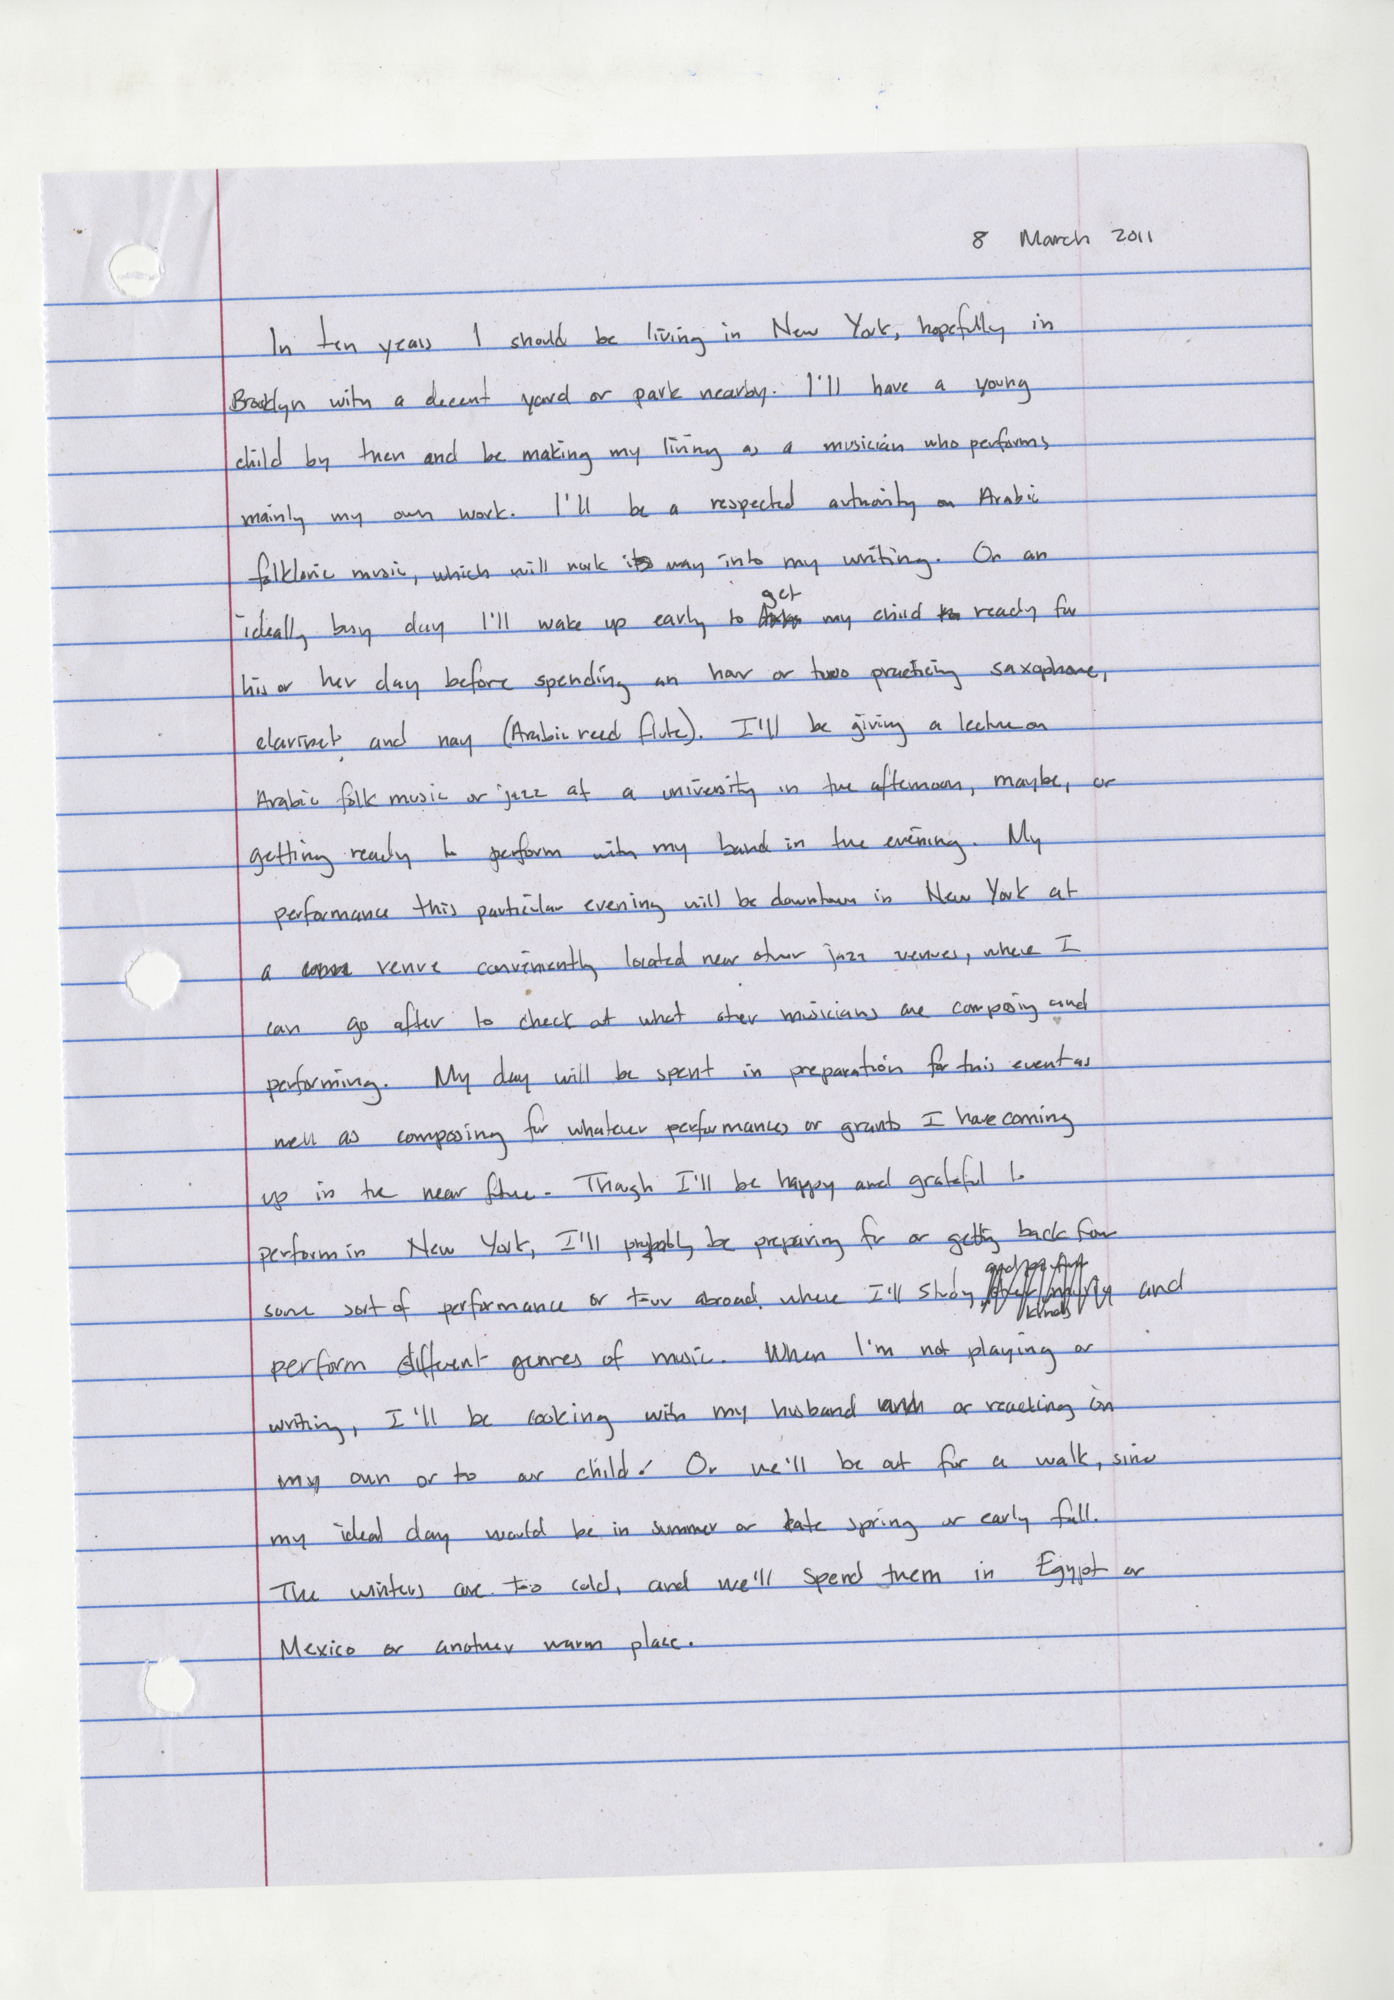 8 March 2011
In ten years I should be living in New York, hopefully in
Brooklyn with a decent yard or park nearby. I'll have a young
child by then and be making my living as a musician who performs
mainly my own work. I'll be a respected authority on Arabic
folkloric music, which will work its way into my writing. On an
ideally busy day I'll wake up early to get my child ready for
his or her day before spending an hour or two practicing saxophone,
clarinet and nay (Arabic reed flute). I'll be giving a lecture on
Arabic folk music or jazz at a university in the afternoon, maybe, or
getting ready to perform with my band in the evening. My
performance this particular evening will be downtown in New York at
a venue conveniently located near other jazz venues, where I
can go after to check out what other musicians are composing and
performing. My day will be spent in preparation for this event as
well as composing for whatever performances or grants I have coming
up in the near future. Though I'll be happy and grateful to
perform in New York, I'll probably be preparing for or getting back from
some sort of performance or tour abroad where I'll study and
perform different genres of music. When I'm not playing or
writing, I'll be cooking with my husband or reading on
my own or to our child. Or we'll be out for a walk, since
my ideal day would be in summer or late spring or early fall.
The winters are too cold, and we'll spend them in Egypt or
Mexico or another warm place.